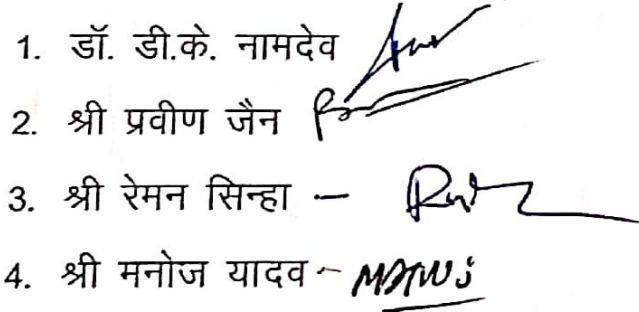 1. डॉ. डी.के. नामदेव
2. श्री प्रवीण जैन
3. श्री रेमन सिन्हा –
4. श्री मनोज यादव -